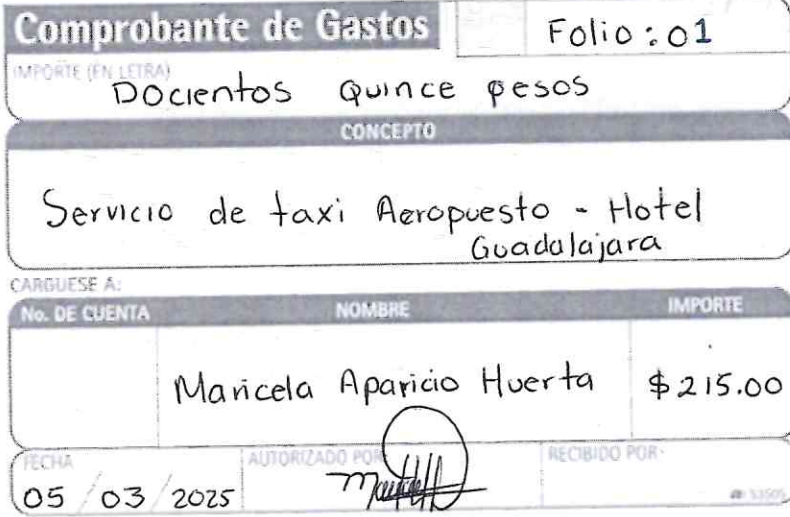 Comprobante de Gastos
Folio: 01
IMPORTE (EN LETRA)
Docientos Quince pesos
CONCEPTO
Servicio de taxi Aeropuesto - Hotel
Guadalajara
CARGUESE A:
No. DE CUENTA NOMBRE IMPORTE
Maricela Aparicio Huerta $215.00
FECHA AUTORIZADO POR: RECIBIDO POR:
05 / 03 / 2025